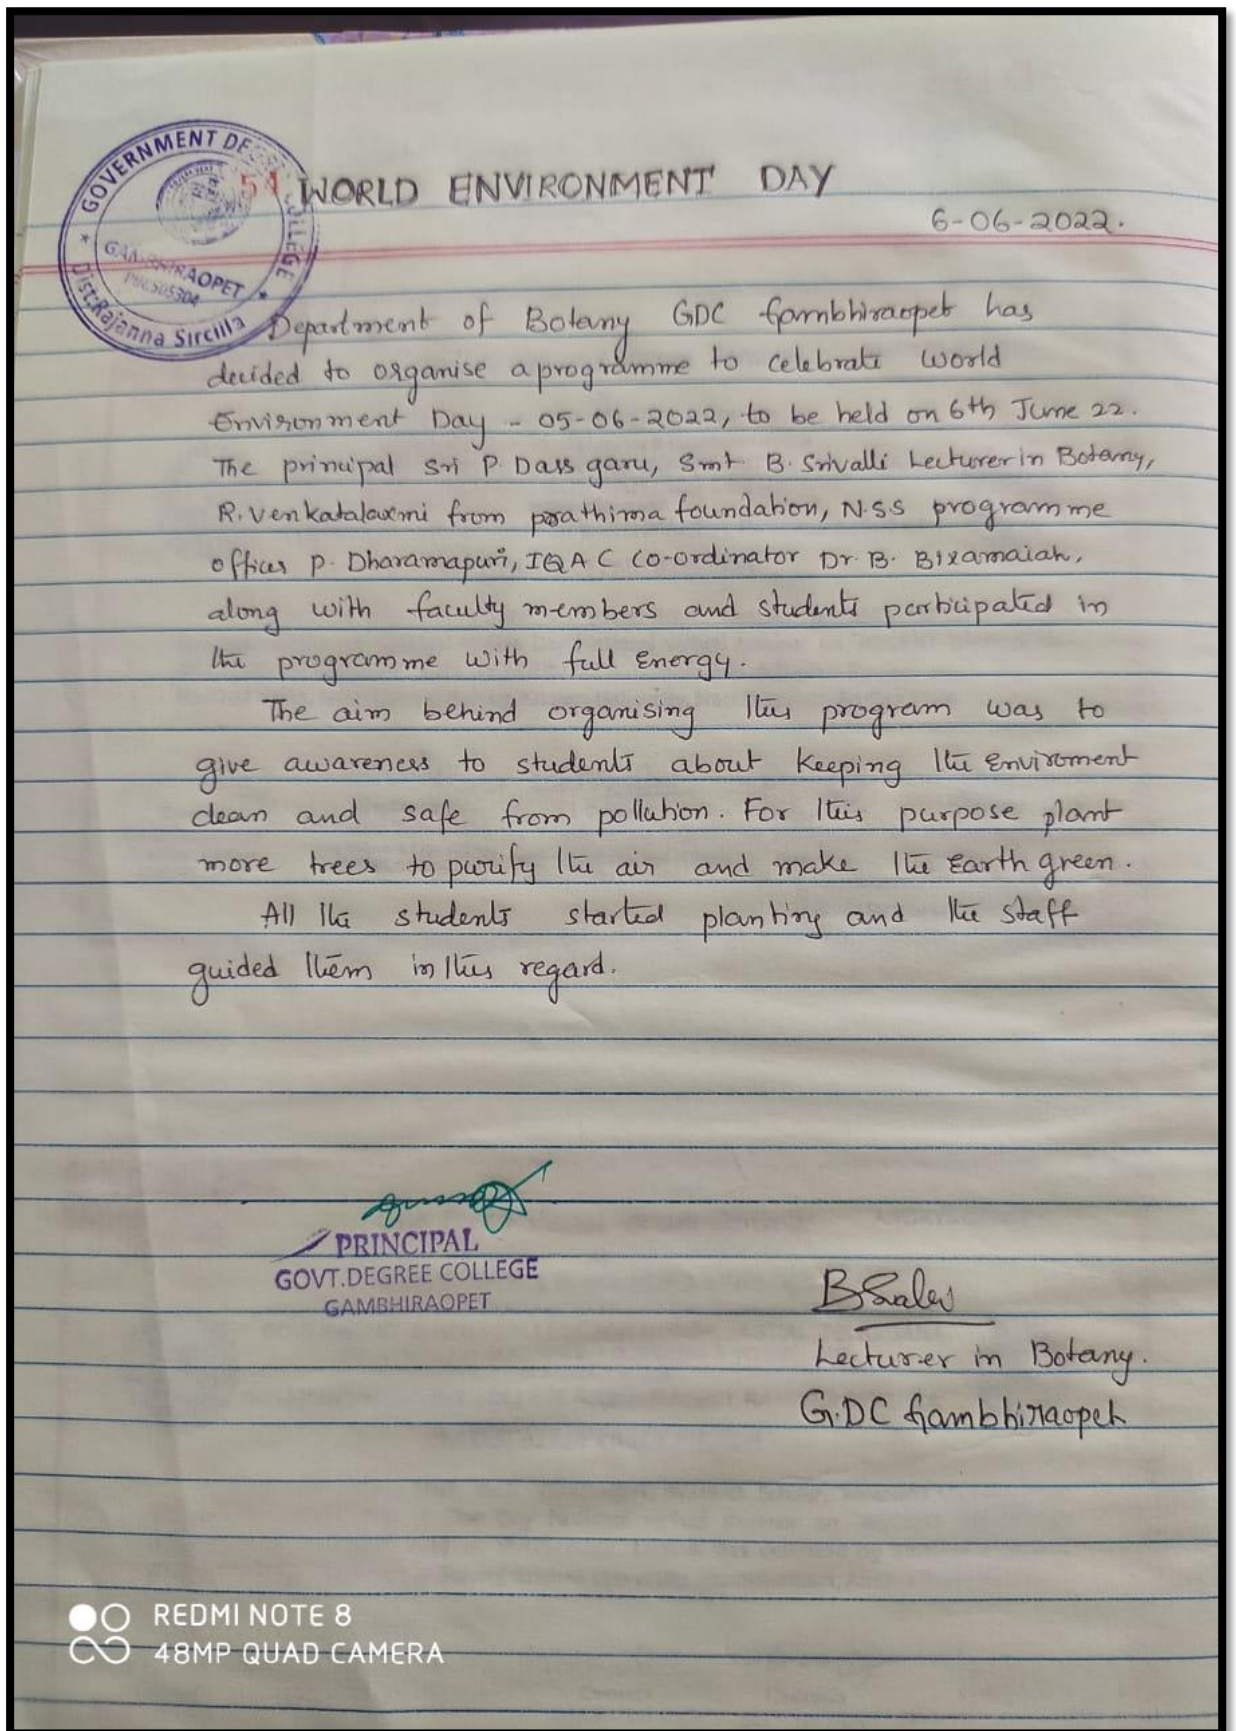 GOVERNMENT DEGREE COLLEGE
GAMBHIRAOPET
PIN:505304
Dist:Rajanna Sircilla
WORLD ENVIRONMENT DAY
6-06-2022.
Department of Botany GDC Gambhiraopet has
decided to organise a programme to celebrate world
Environment Day - 05-06-2022, to be held on 6th June 22.
The principal Sri P. Dass garu, Smt B. Srivalli Lecturer in Botany,
R. Venkatalaxmi from prathima foundation, N.S.S programme
officer P. Dharamapuri, IQAC Co-ordinator Dr. B. Bixamaiah,
along with faculty members and students participated in
the programme with full Energy.
The aim behind organising this program was to
give awareness to students about keeping the Enviroment
clean and safe from pollution. For this purpose plant
more trees to purify the air and make the Earth green.
All the students started planting and the staff
guided them in this regard.
PRINCIPAL
GOVT.DEGREE COLLEGE
GAMBHIRAOPET
Lecturer in Botany.
G.DC Gambhiraopet
REDMI NOTE 8
48MP QUAD CAMERA